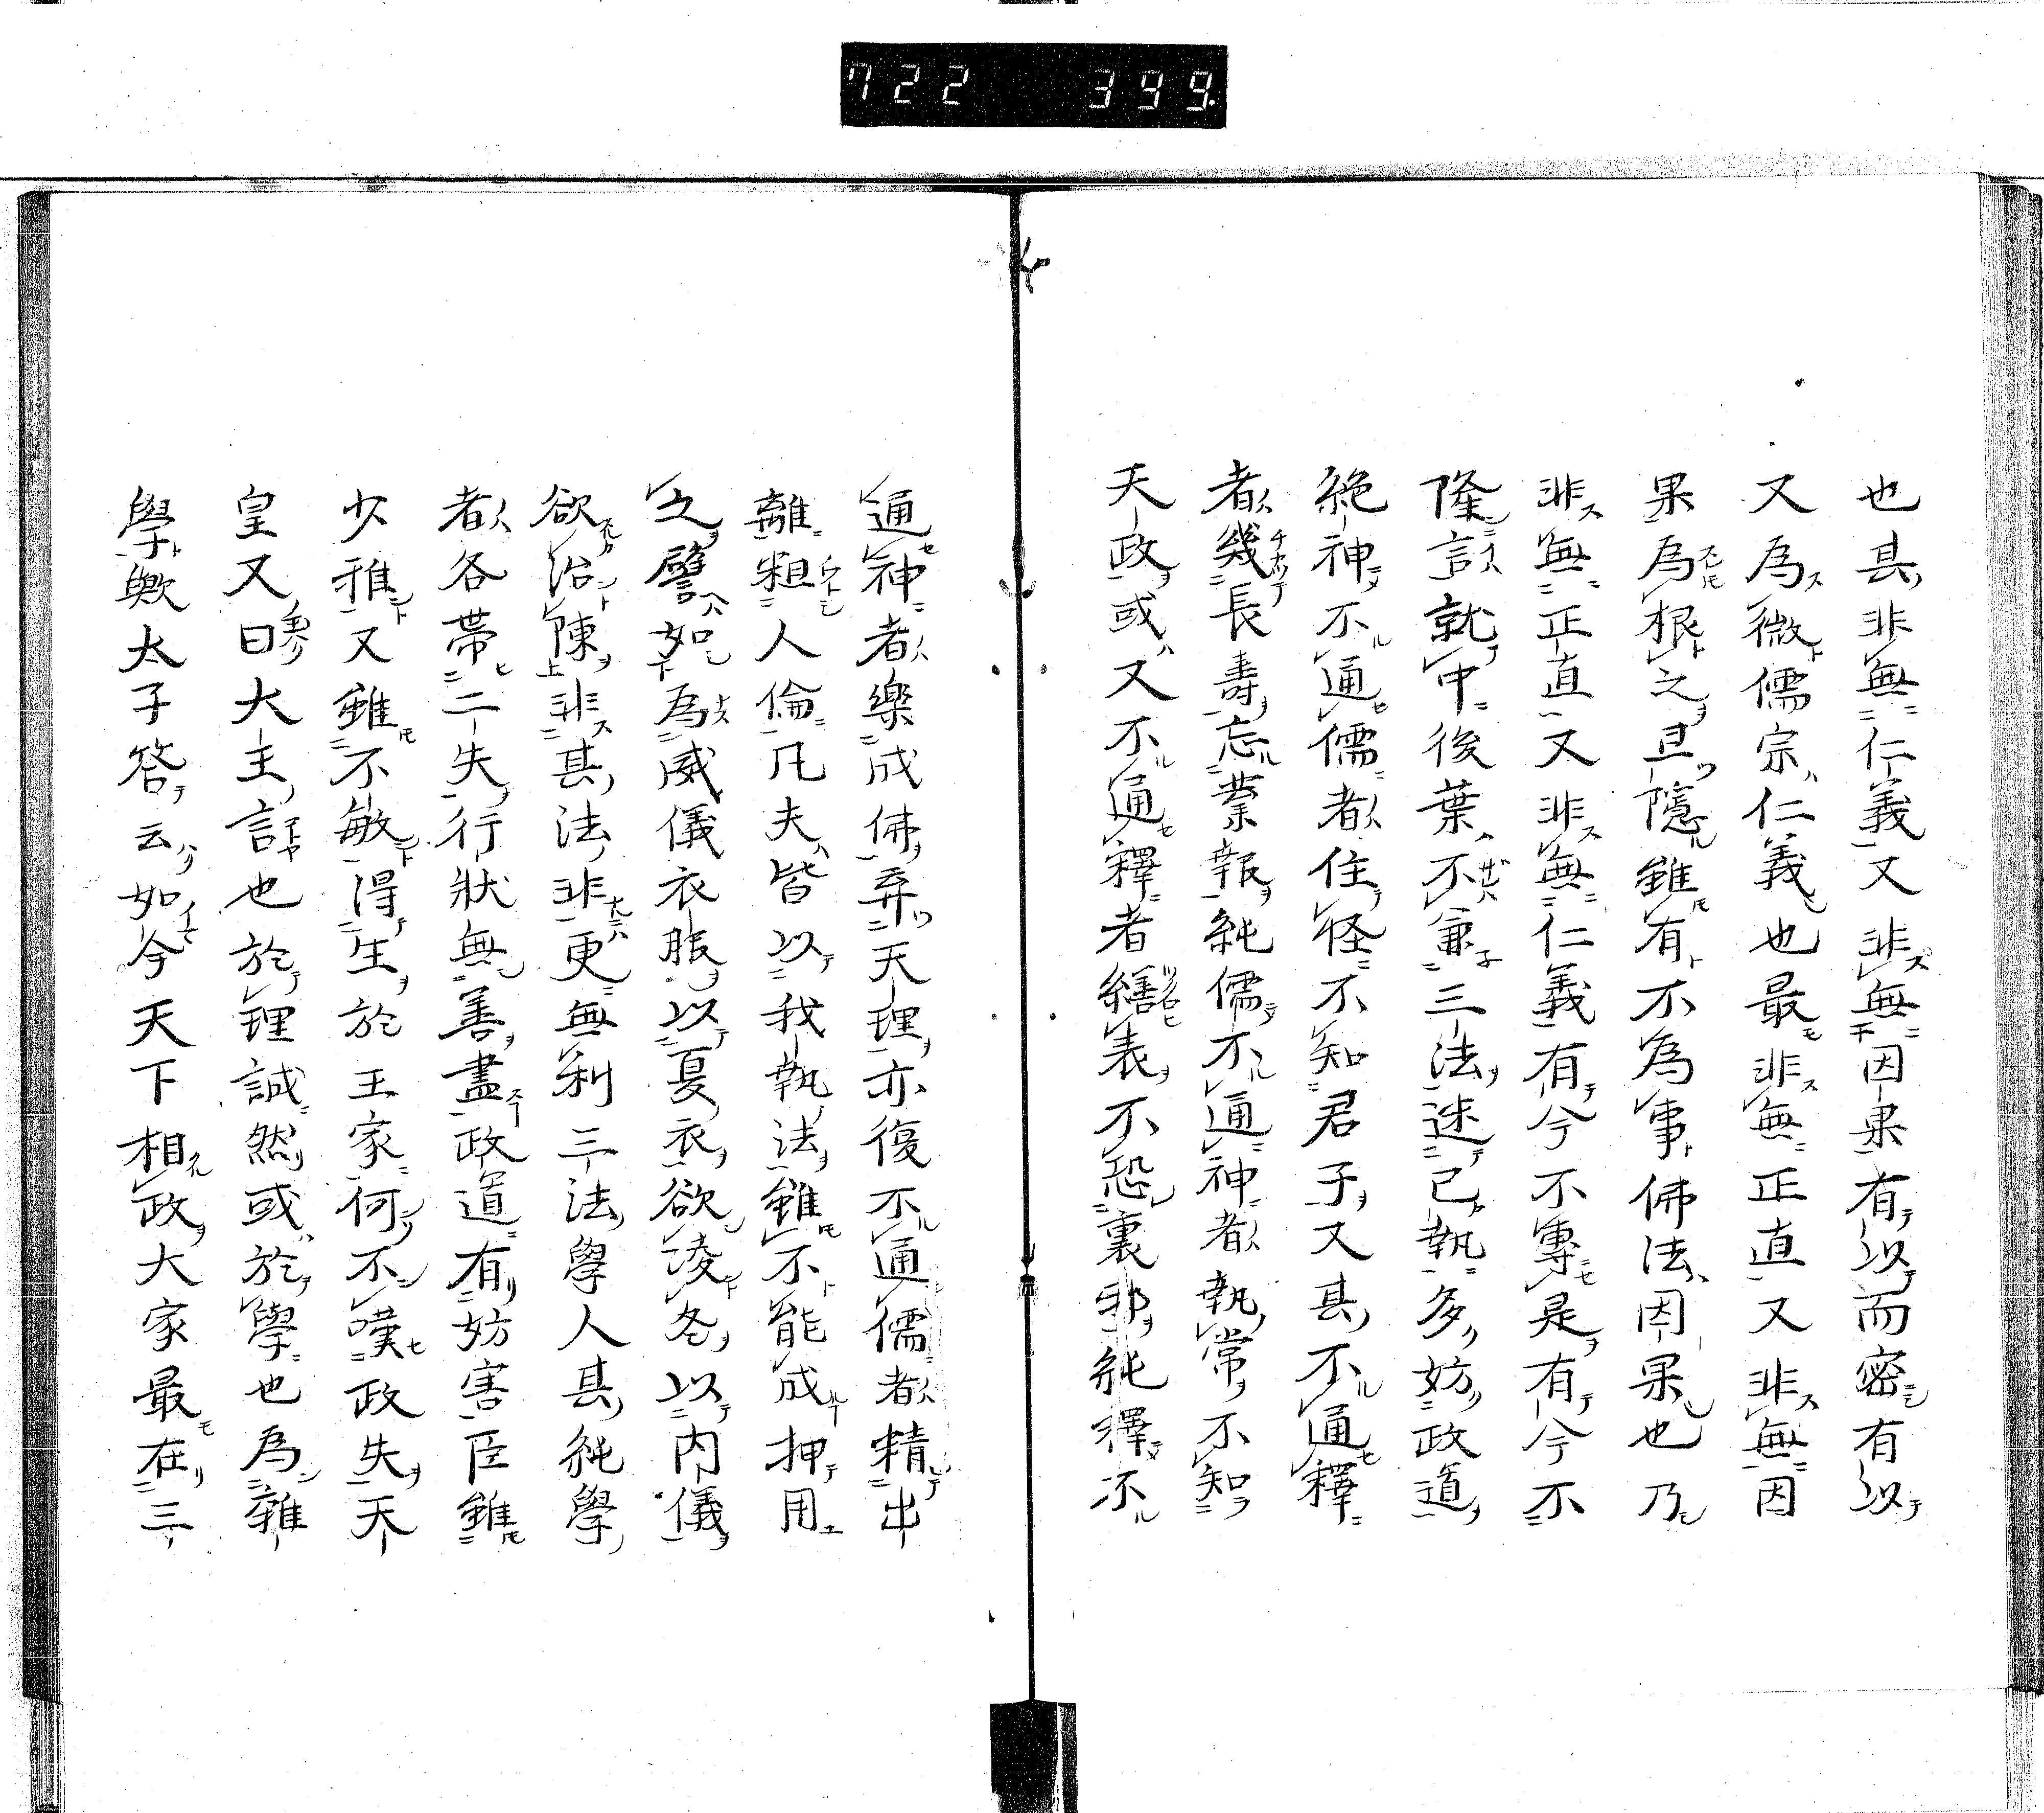 722 399
也其非無仁義又非無因果有以而密有以
又為微儒宗仁義也最非無正直又非無因
果為根之且隱雖有不為事佛法因果也乃
非無正直又非無仁義有今不專是有今不
隆言就中後葉不兼三法迷已執多妨政道
絶神不通儒者住怪不知君子又其不通釋
者幾長壽忘業報純儒不通神者執常不知
天政或又不通釋者繕表不恐裏邪純釋不
通神者樂成佛弃天理亦復不通儒者精出
離粗人倫凡夫皆以我執法雖不能成押用
之譬如為威儀衣服以夏衣欲凌冬以内儀
欲治陳非其法非更無利三法學人其純學
者各帯二失行狀無善盡政道有妨害臣雖
少雅又雖不敏得生於王家何不嘆政失天
皇又曰大王言也於理誠然或於學也為雜
學歟太子答云如今天下相政大家最在三